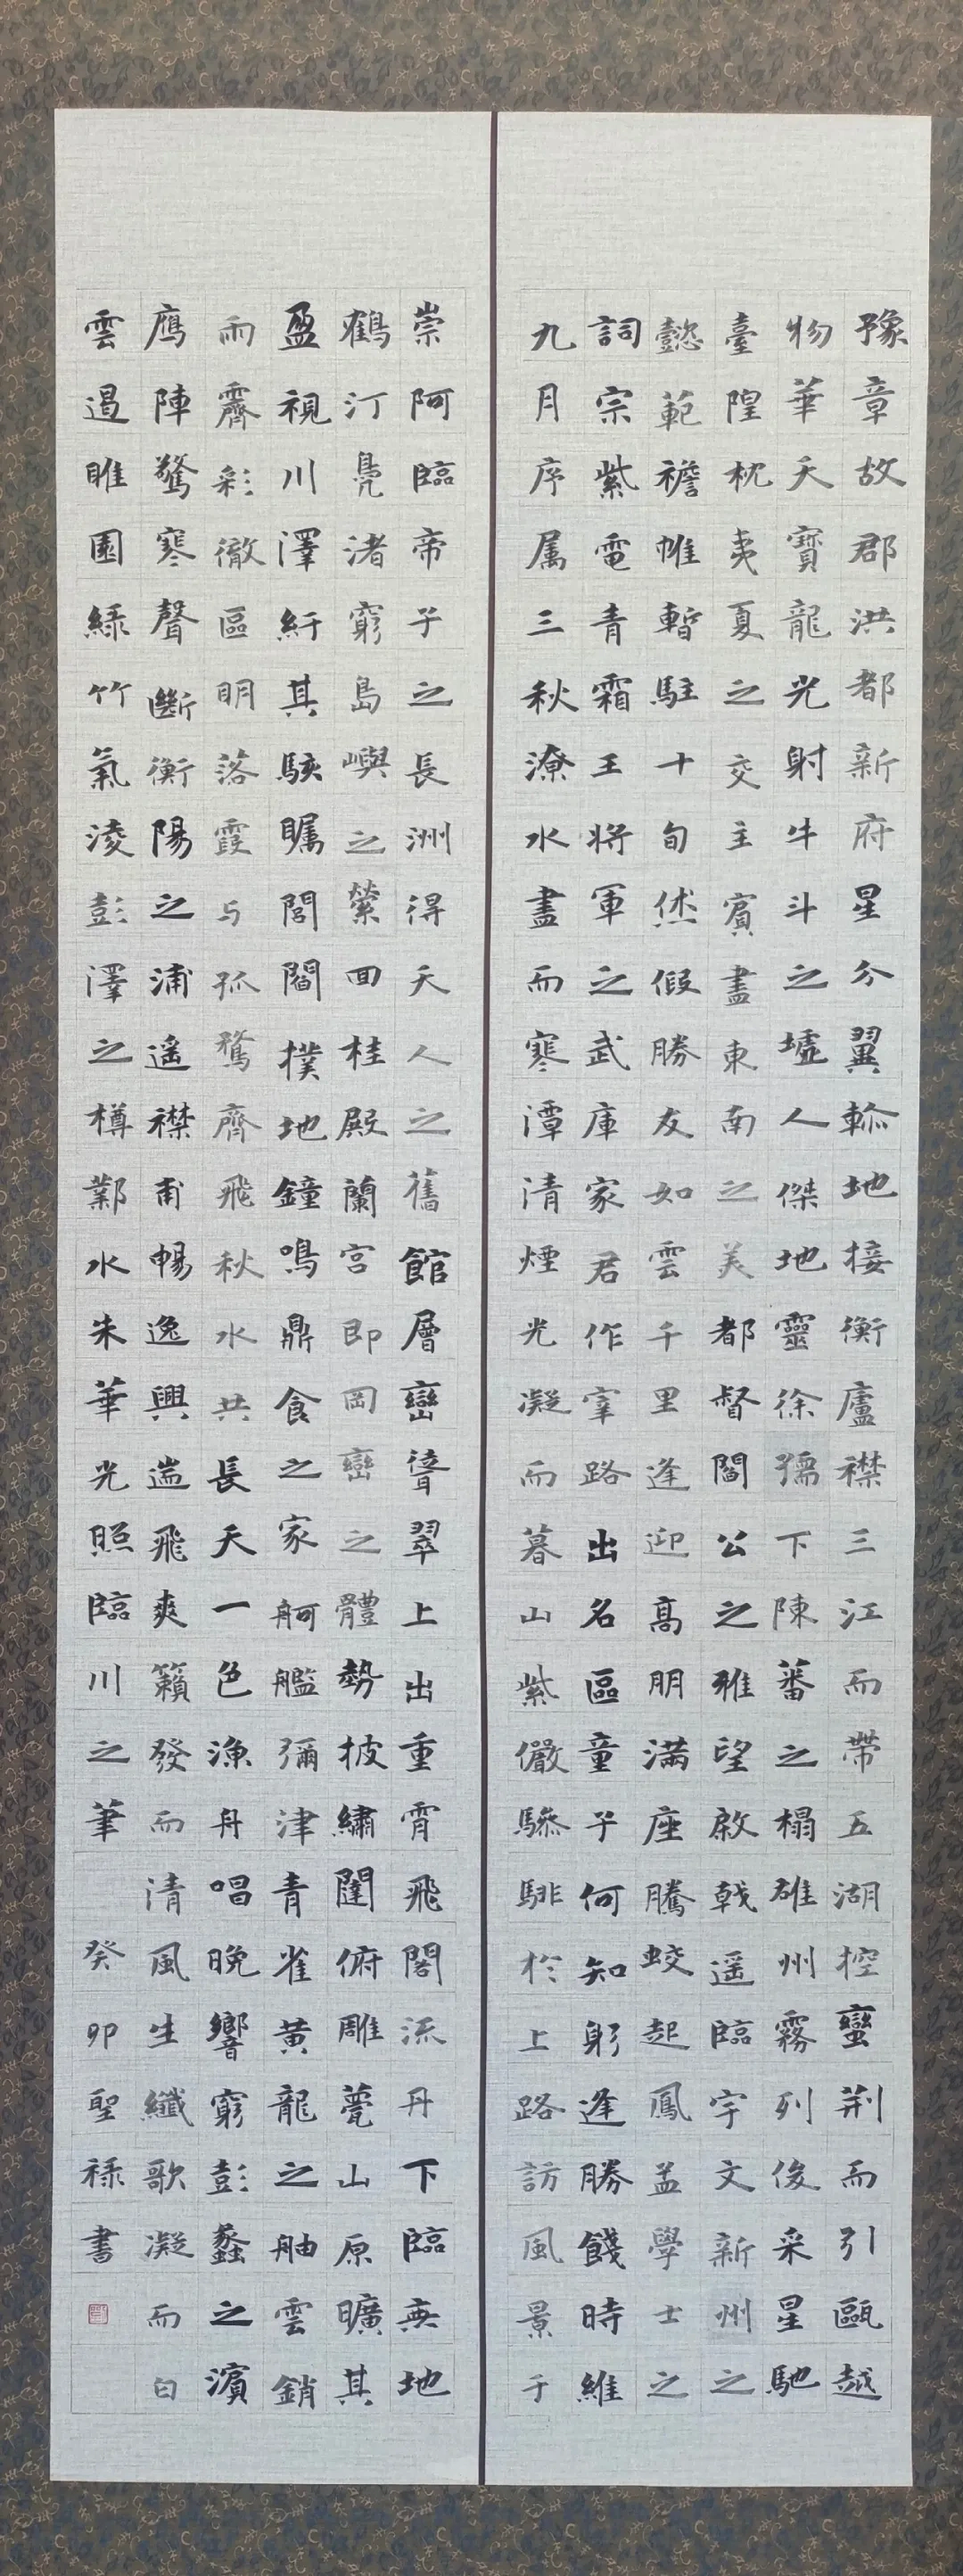 豫章故郡洪都新府星分翼軫地接衡廬襟三江而帶五湖控蠻荊而引甌越
物華天寶龍光射牛斗之墟人傑地靈徐孺下陳蕃之榻雄州霧列俊采星馳
臺隍枕夷夏之交主賓盡東南之美都督閻公之雅望啟戟遥臨宇文新州之
懿範襜帷暫駐十旬烋假勝友如雲千里逢迎高朋滿座騰蛟起鳳孟學士之
詞宗紫電青霜王將軍之武庫家君作宰路出名區童子何知躬逢勝餞時維
九月序属三秋潦水盡而寒潭清煙光凝而暮山紫儼驂騑於上路訪風景于
崇阿臨帝子之長洲得天人之舊館層巒聳翠上出重霄飛閣流丹下臨無地
鶴汀鳧渚窮島嶼之縈回桂殿蘭宮即岡巒之體勢披繡闥俯雕甍山原曠其
盈視川澤紆其駭矚閭閻撲地鐘鳴鼎食之家舸艦彌津青雀黃龍之舳雲銷
雨霽彩徹區明落霞与孤鶩齊飛秋水共長天一色漁舟唱晚響窮彭蠡之濱
鴈陣驚寒聲斷衡陽之浦遥襟甫暢逸興遄飛爽籟發而清風生纖歌凝而白
雲遏睢園綠竹氣淩彭澤之樽鄴水朱華光照臨川之筆 癸卯聖祿書